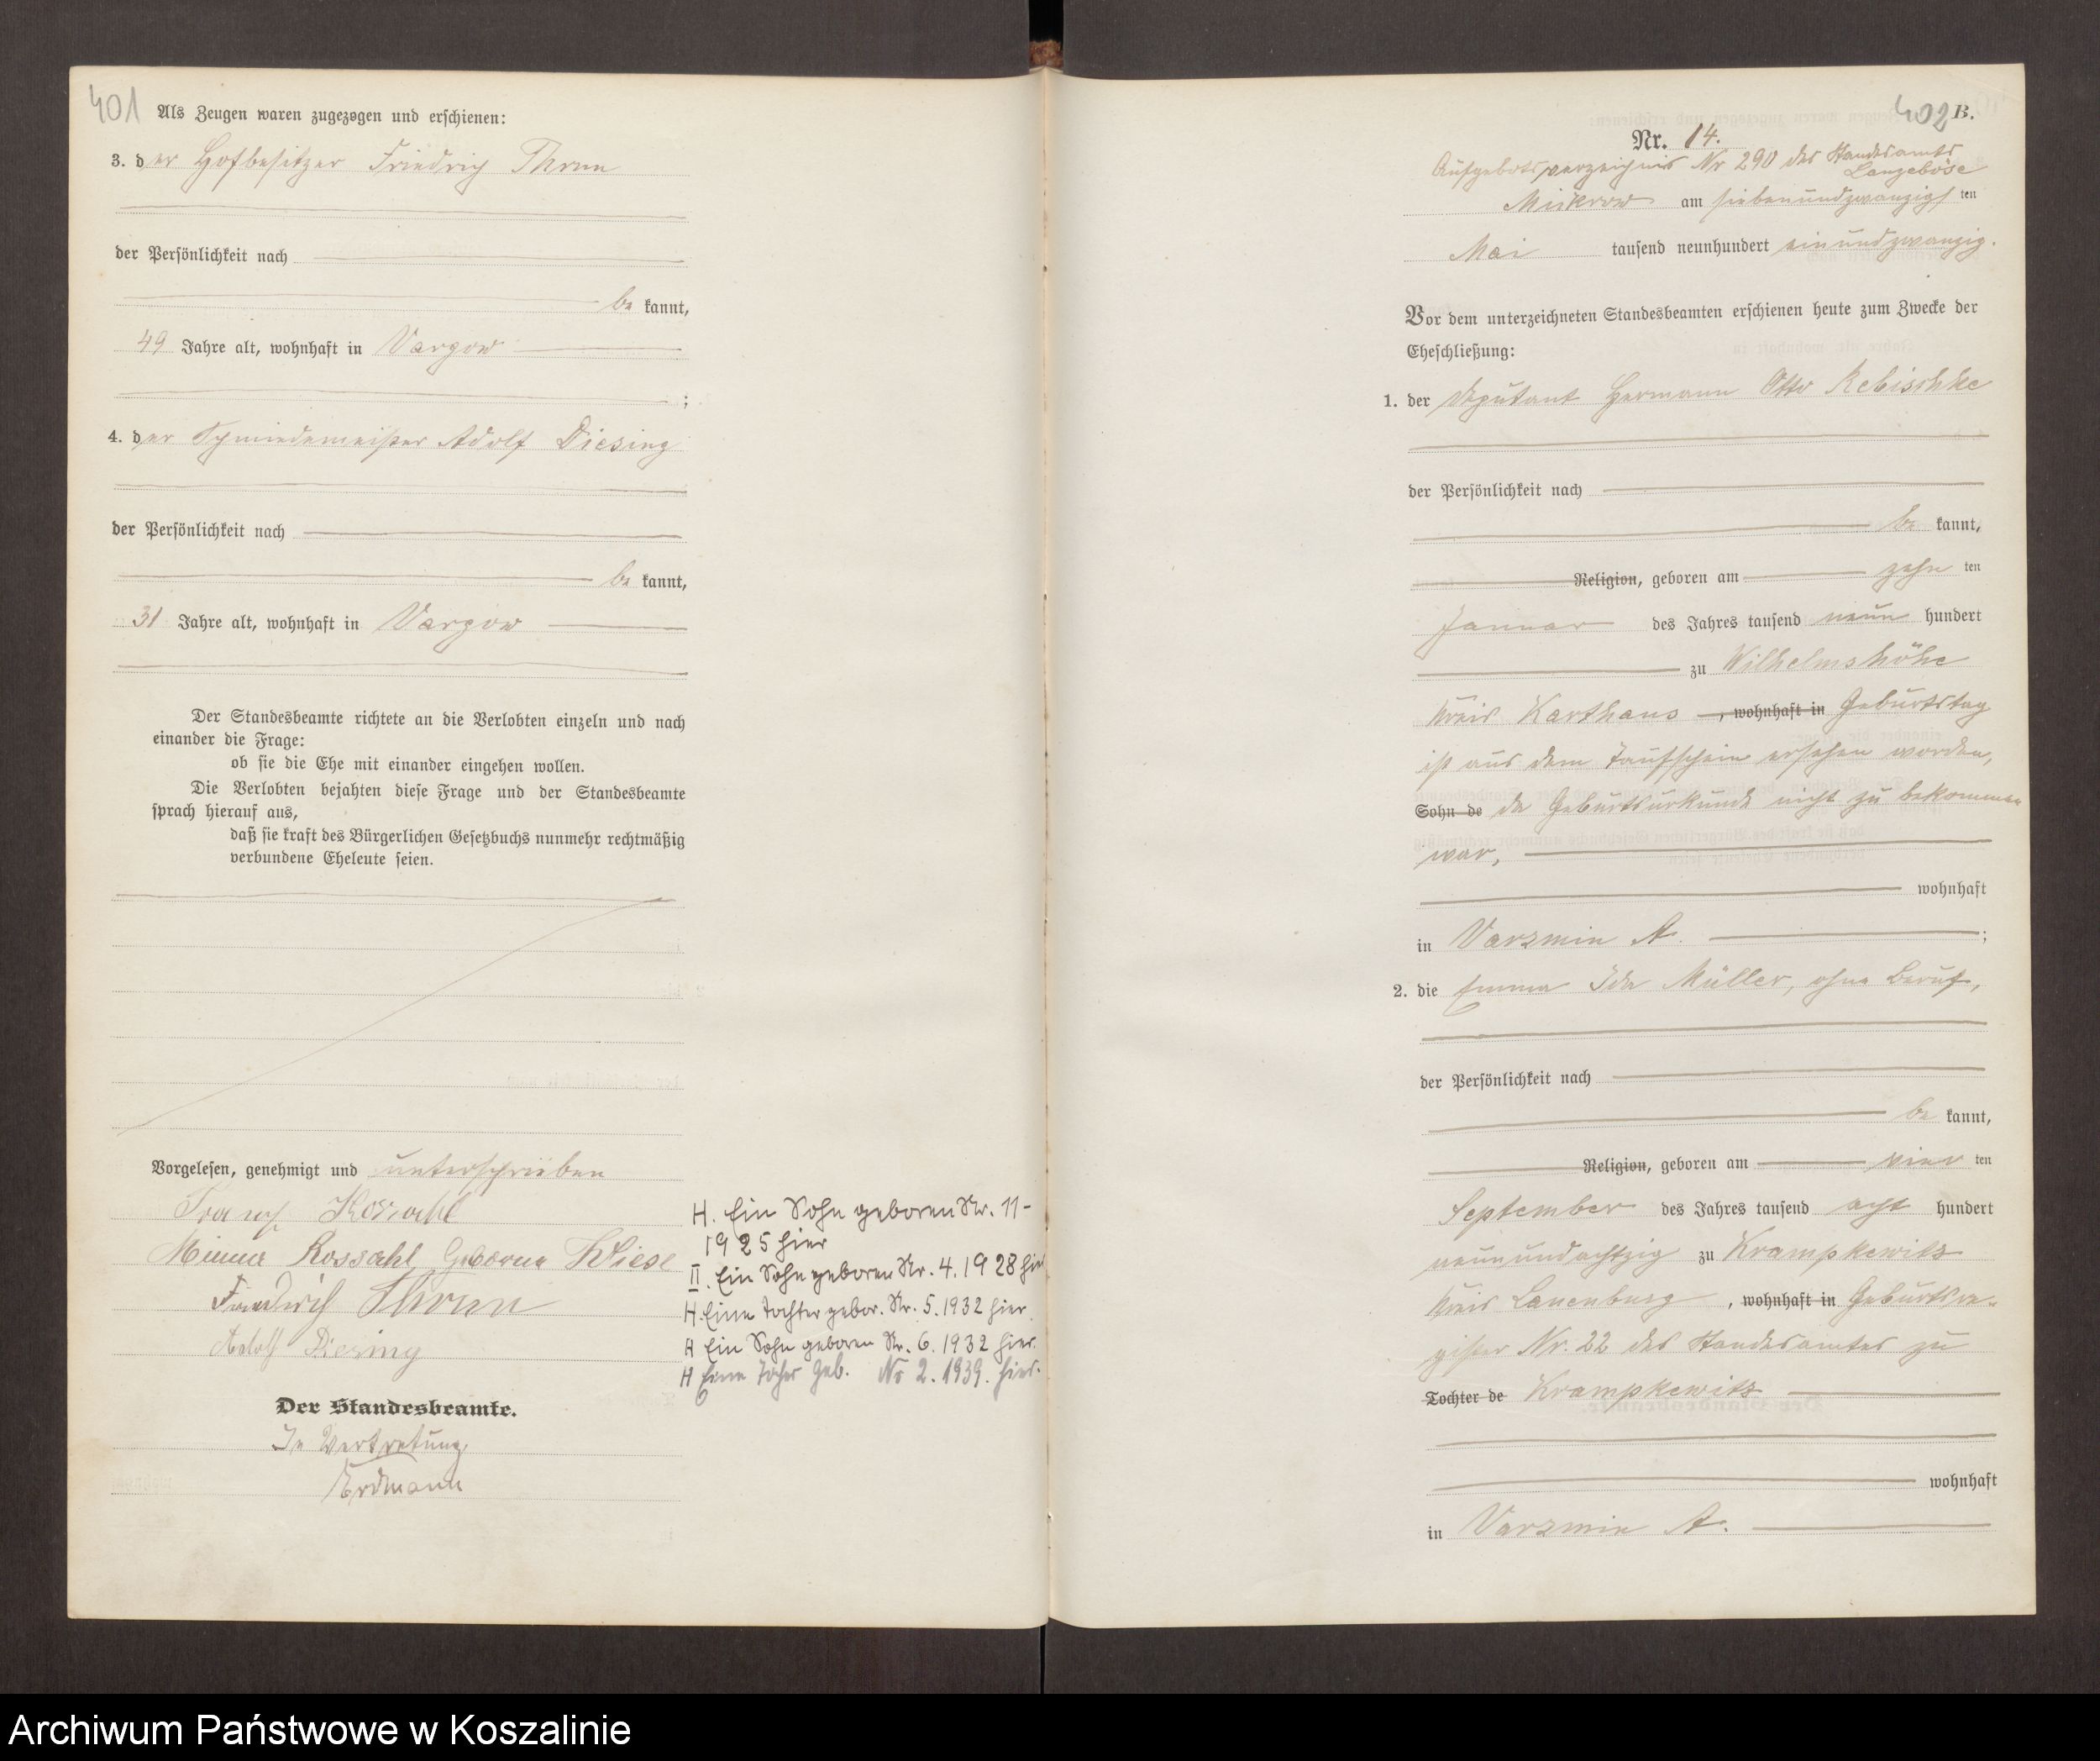 401
Als Zeugen waren zugezogen und erschienen:
3. der Hofbesitzer Friedrich Thrun
der Persönlichkeit nach
be kannt,
49 Jahre alt, wohnhaft in Vargow
;
4. der Schmiedemeister Adolf Diesing
der Persönlichkeit nach
be kannt,
31 Jahre alt, wohnhaft in Vargow
Der Standesbeamte richtete an die Verlobten einzeln und nach
einander die Frage:
ob sie die Ehe mit einander eingehen wollen.
Die Verlobten bejahten diese Frage und der Standesbeamte
sprach hierauf aus,
daß sie kraft des Bürgerlichen Gesetzbuchs nunmehr rechtmäßig
verbundene Eheleute seien.
Vorgelesen, genehmigt und unterschrieben
Minna Rossahl geborene Wiese
Friedrich Thrun
Adolf Diesing
Der Standesbeamte.
In Vertretung
Erdmann
H. Ein Sohn geboren Nr. 11-
1925 hier
II. Ein Sohn geboren Nr. 4. 1928 hier
H. Eine Tochter gebor. Nr. 5. 1932 hier
H Ein Sohn geboren Nr. 6. 1932 hier.
H Eine Tochter geb. No 2. 1939. hier.
402 B.
Nr. 14.
Aufgebotsverzeichnis Nr 290 des Standesamts
Langeböse
Mickrow am siebenundzwanzigsten
Mai tausend neunhundert einundzwanzig.
Vor dem unterzeichneten Standesbeamten erschienen heute zum Zwecke der
Eheschließung:
1. der Deputant Hermann Otto Rebischke
der Persönlichkeit nach
be kannt,
Religion, geboren am zehn ten
Januar des Jahres tausend neun hundert
zu Wilhelmshöhe
Kreis Karthaus , wohnhaft in Geburtstag
ist aus dem Taufschein ersehen worden,
Sohn de da Geburtsurkunde nicht zu bekommen
war,
wohnhaft
in Varzmin A. ;
2. die Emma Ida Müller, ohne Beruf,
der Persönlichkeit nach
be kannt,
Religion, geboren am vier ten
September des Jahres tausend acht hundert
neunundachtzig zu Krampkewitz
Kreis Lauenburg , wohnhaft in Geburtsre-
gister Nr. 22 des Standesamtes zu
Tochter de Krampkewitz
wohnhaft
in Varzmin A.
Archiwum Państwowe w Koszalinie